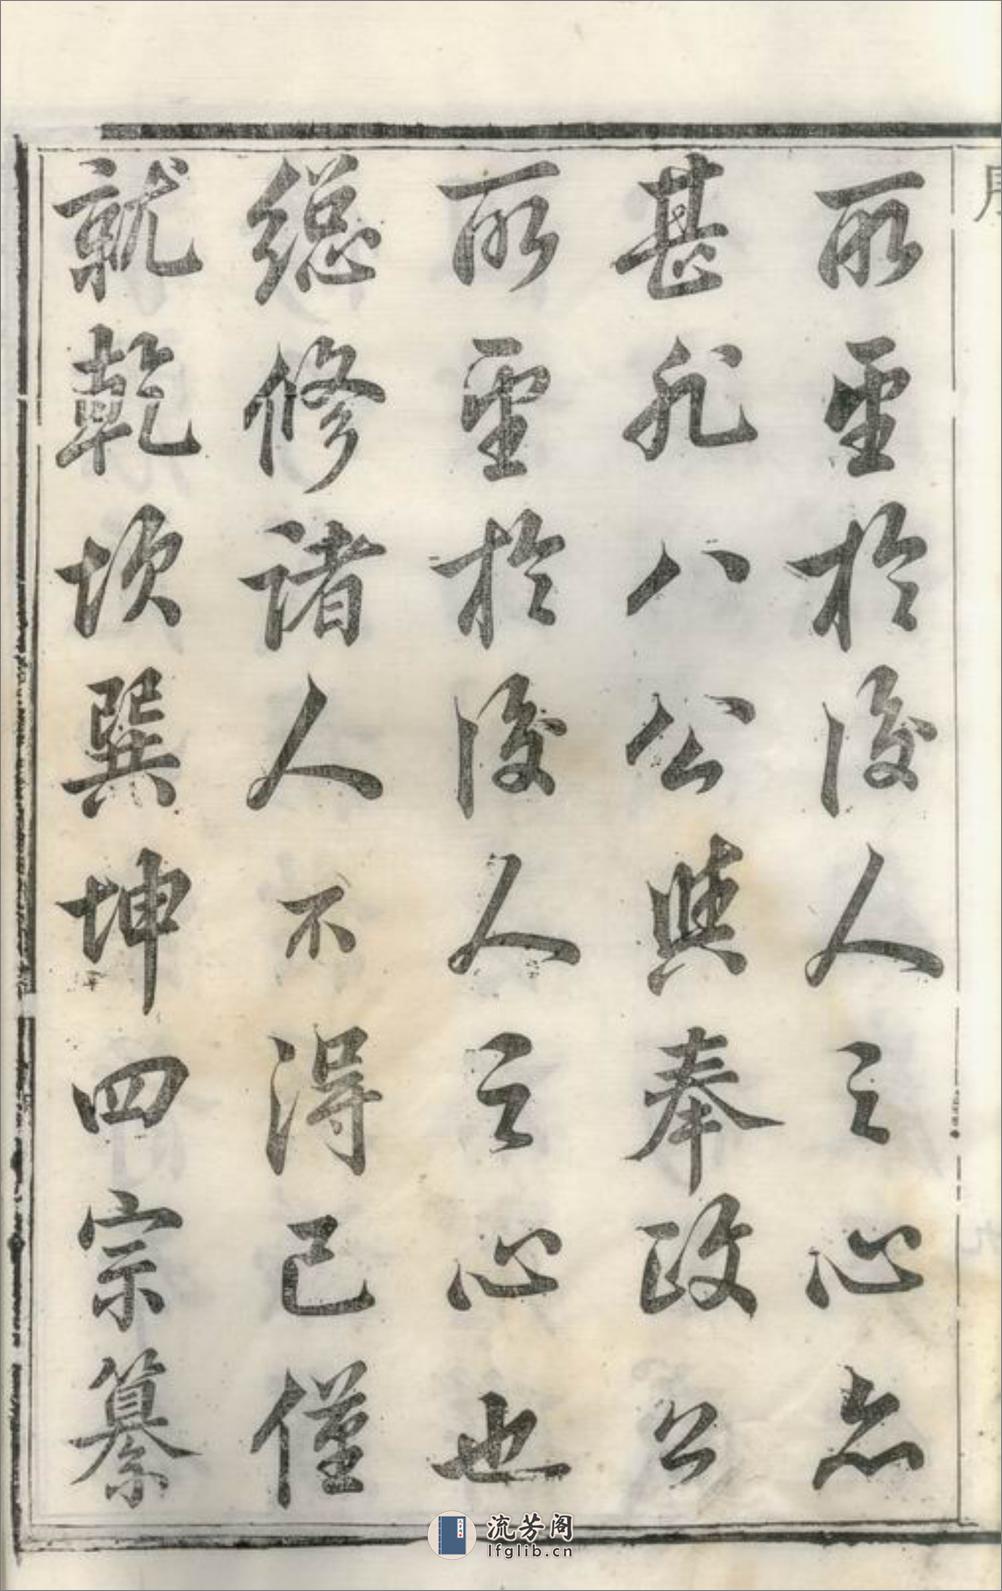 所望於後人之心亦
甚非八公與奉政公
所望於後人之心也
總修諸人不得已僅
就乾坎巽坤四宗纂
流芳阁
lfglib.cn